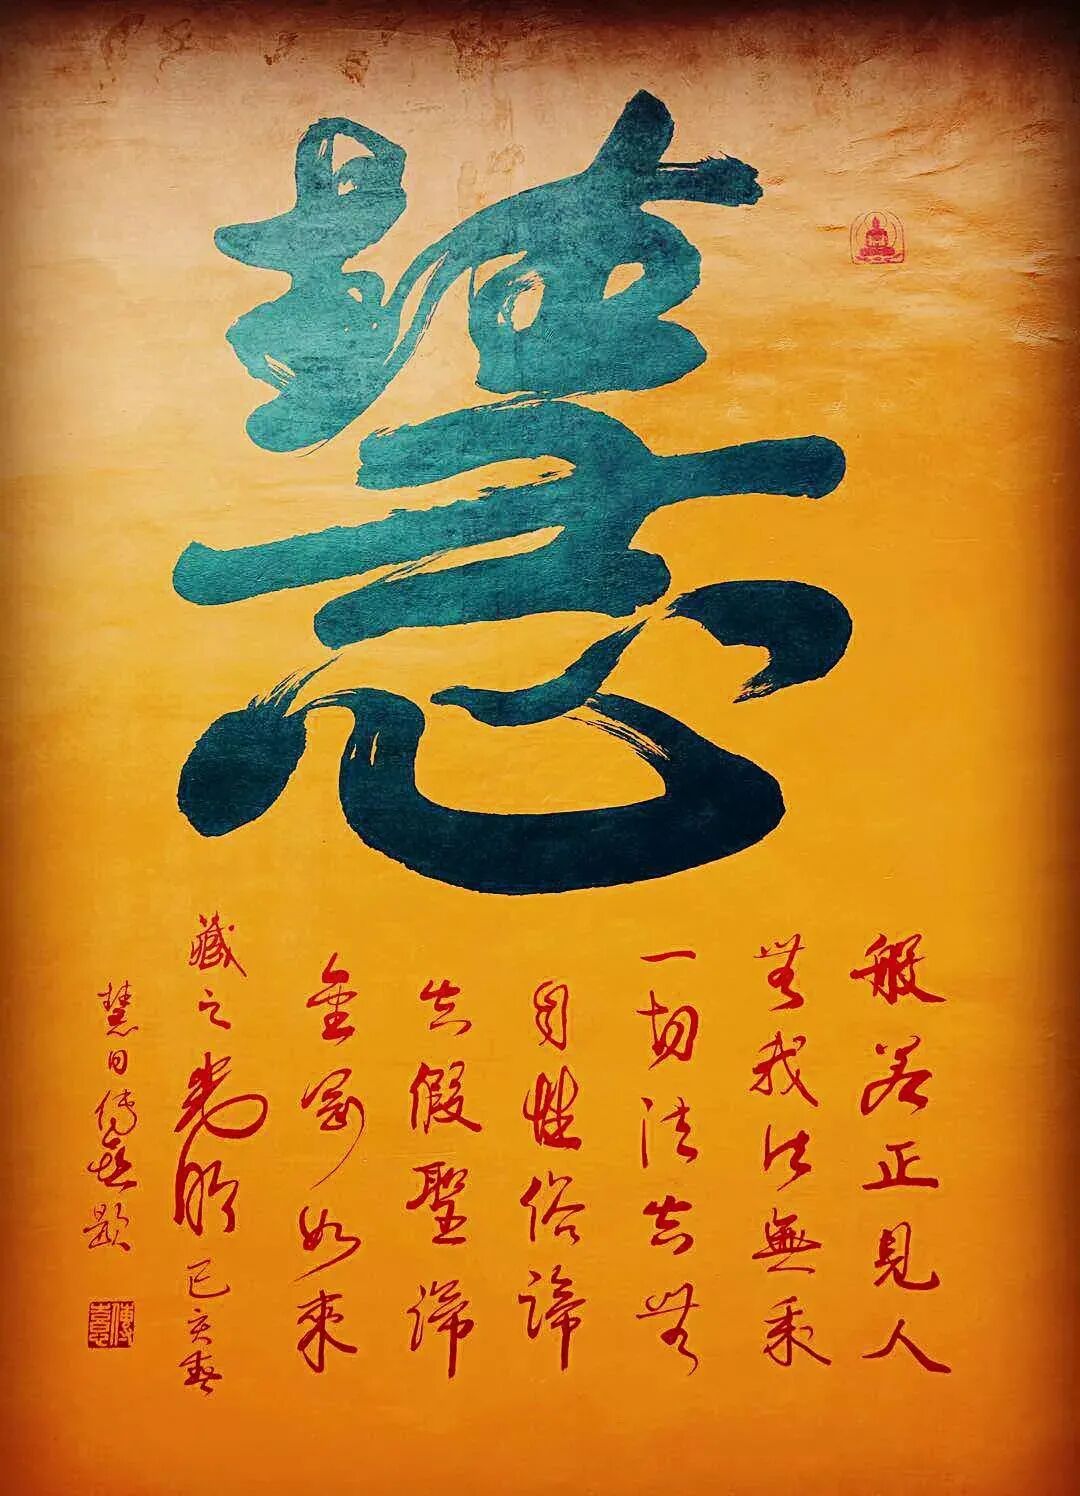 慧
般若正見人
無我法無我
一切法皆無
自性俗諦
皆假聖諦
金剛如來
藏之光明己亥春
慧日傅熹題